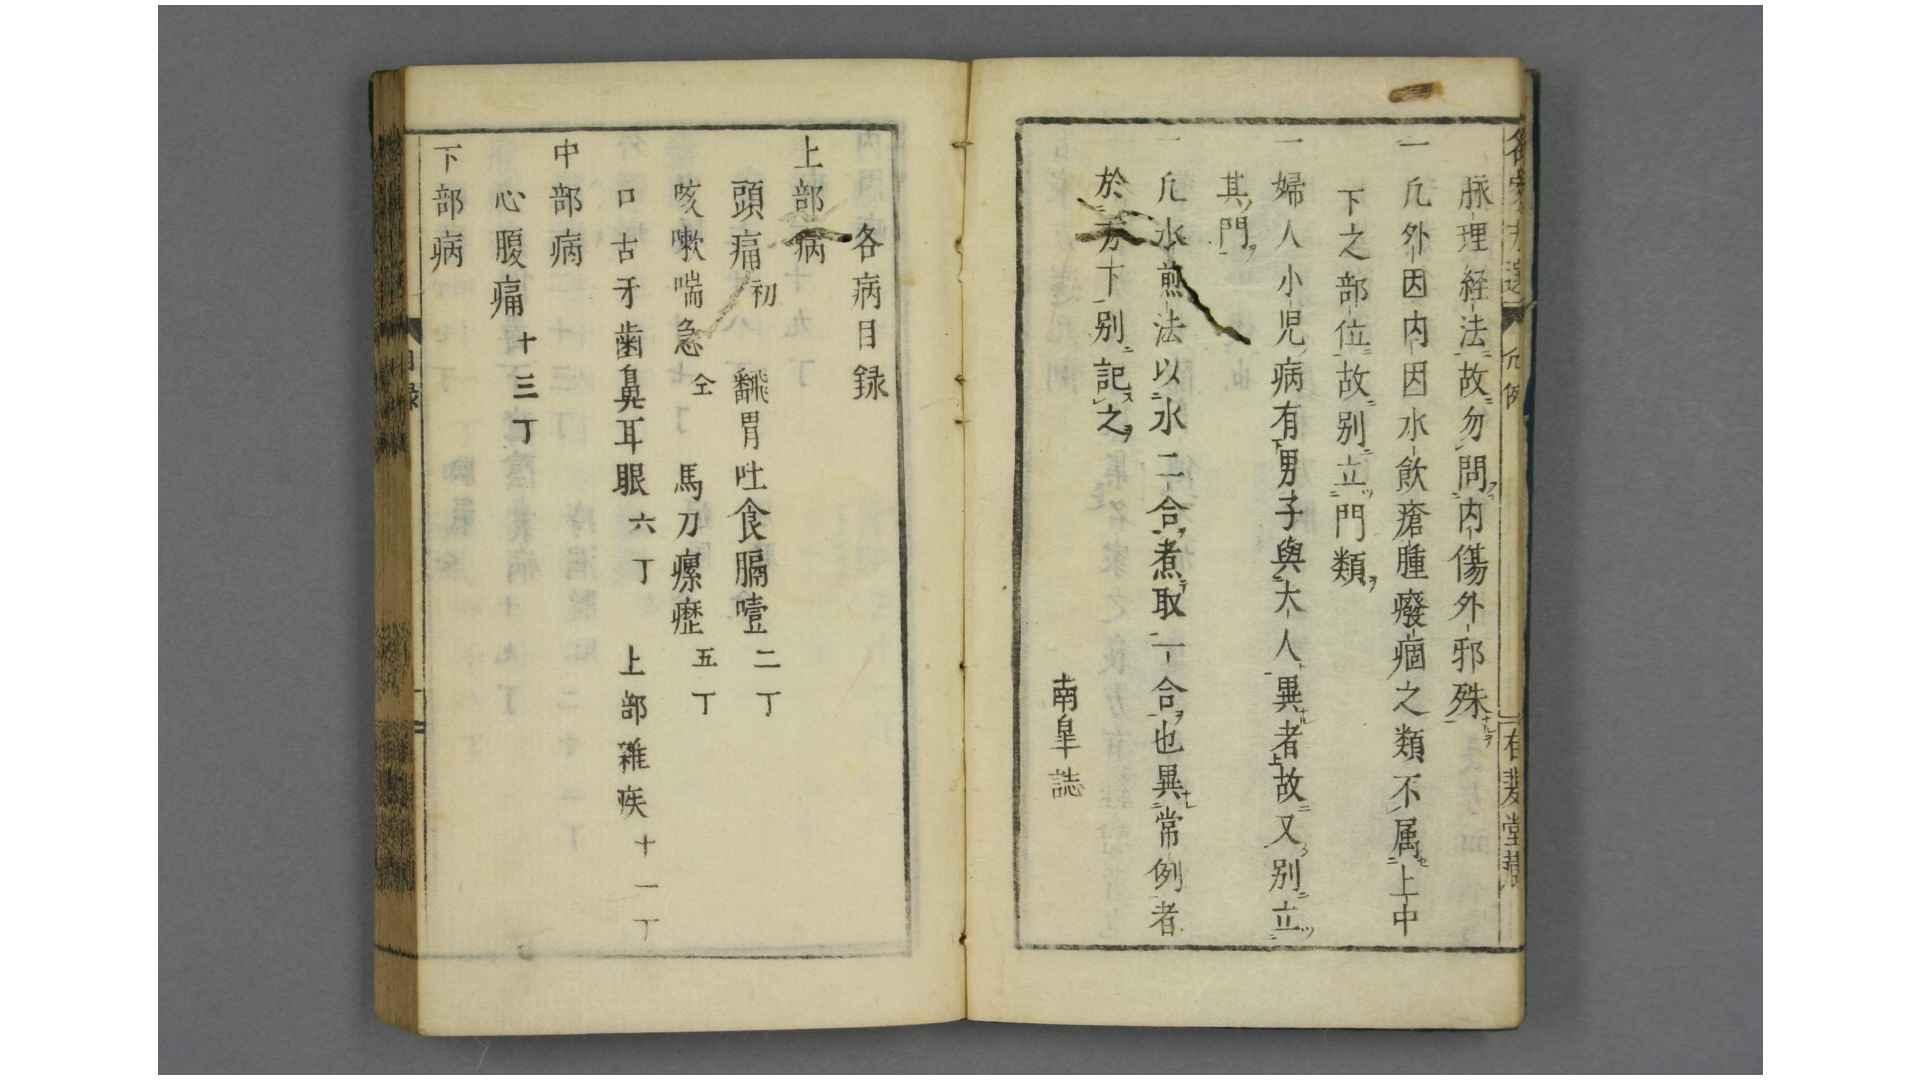 脉理経法故勿問内傷外邪殊
一凢外因内因因水飲瘡腫癈痼之類不属上中
下之部位故别立門類
一婦人小児病有男子與大人異者故又别立
其門
一凢水煎法以水二合煮取一合也異常例者
於方下别記之
南皐誌
凢例
各病目録
上部病
頭痛 初 飜胃吐食膈噎 二丁
咳嗽喘急 仝 馬刀瘰癧 五丁
口舌牙齒鼻耳眼 六丁 上部雜疾 十一丁
中部病
心腹痛 十三丁
下部病
目録